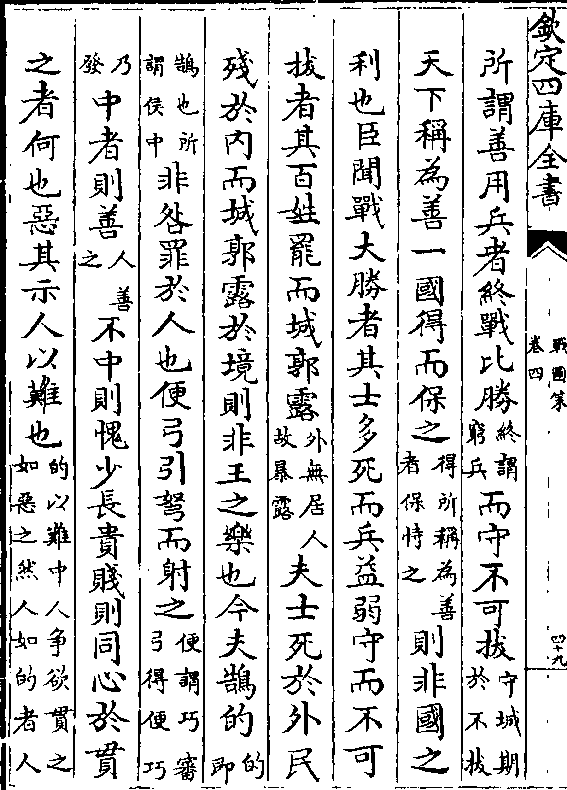 欽定四庫全書
戰國策
卷四
四十九
所謂善用兵者終戰比勝終謂窮兵而守不可拔守城期於不拔
天下稱為善一國得而保之得所稱為善者保恃之則非國之
利也臣聞戰大勝者其士多死而兵益弱守而不可
拔者其百姓罷而城郭露外無居人故暴露夫士死於外民
殘於内而城郭露於境則非王之樂也今夫鵠的的即
鵠也所謂侯中非咎罪於人也便弓引弩而射之便謂巧審弓得便巧
乃發中者則善人善之不中則愧少長貴賤則同心於貫
之者何也惡其示人以難也的以難中人争欲貫之如惡之然人如的者人